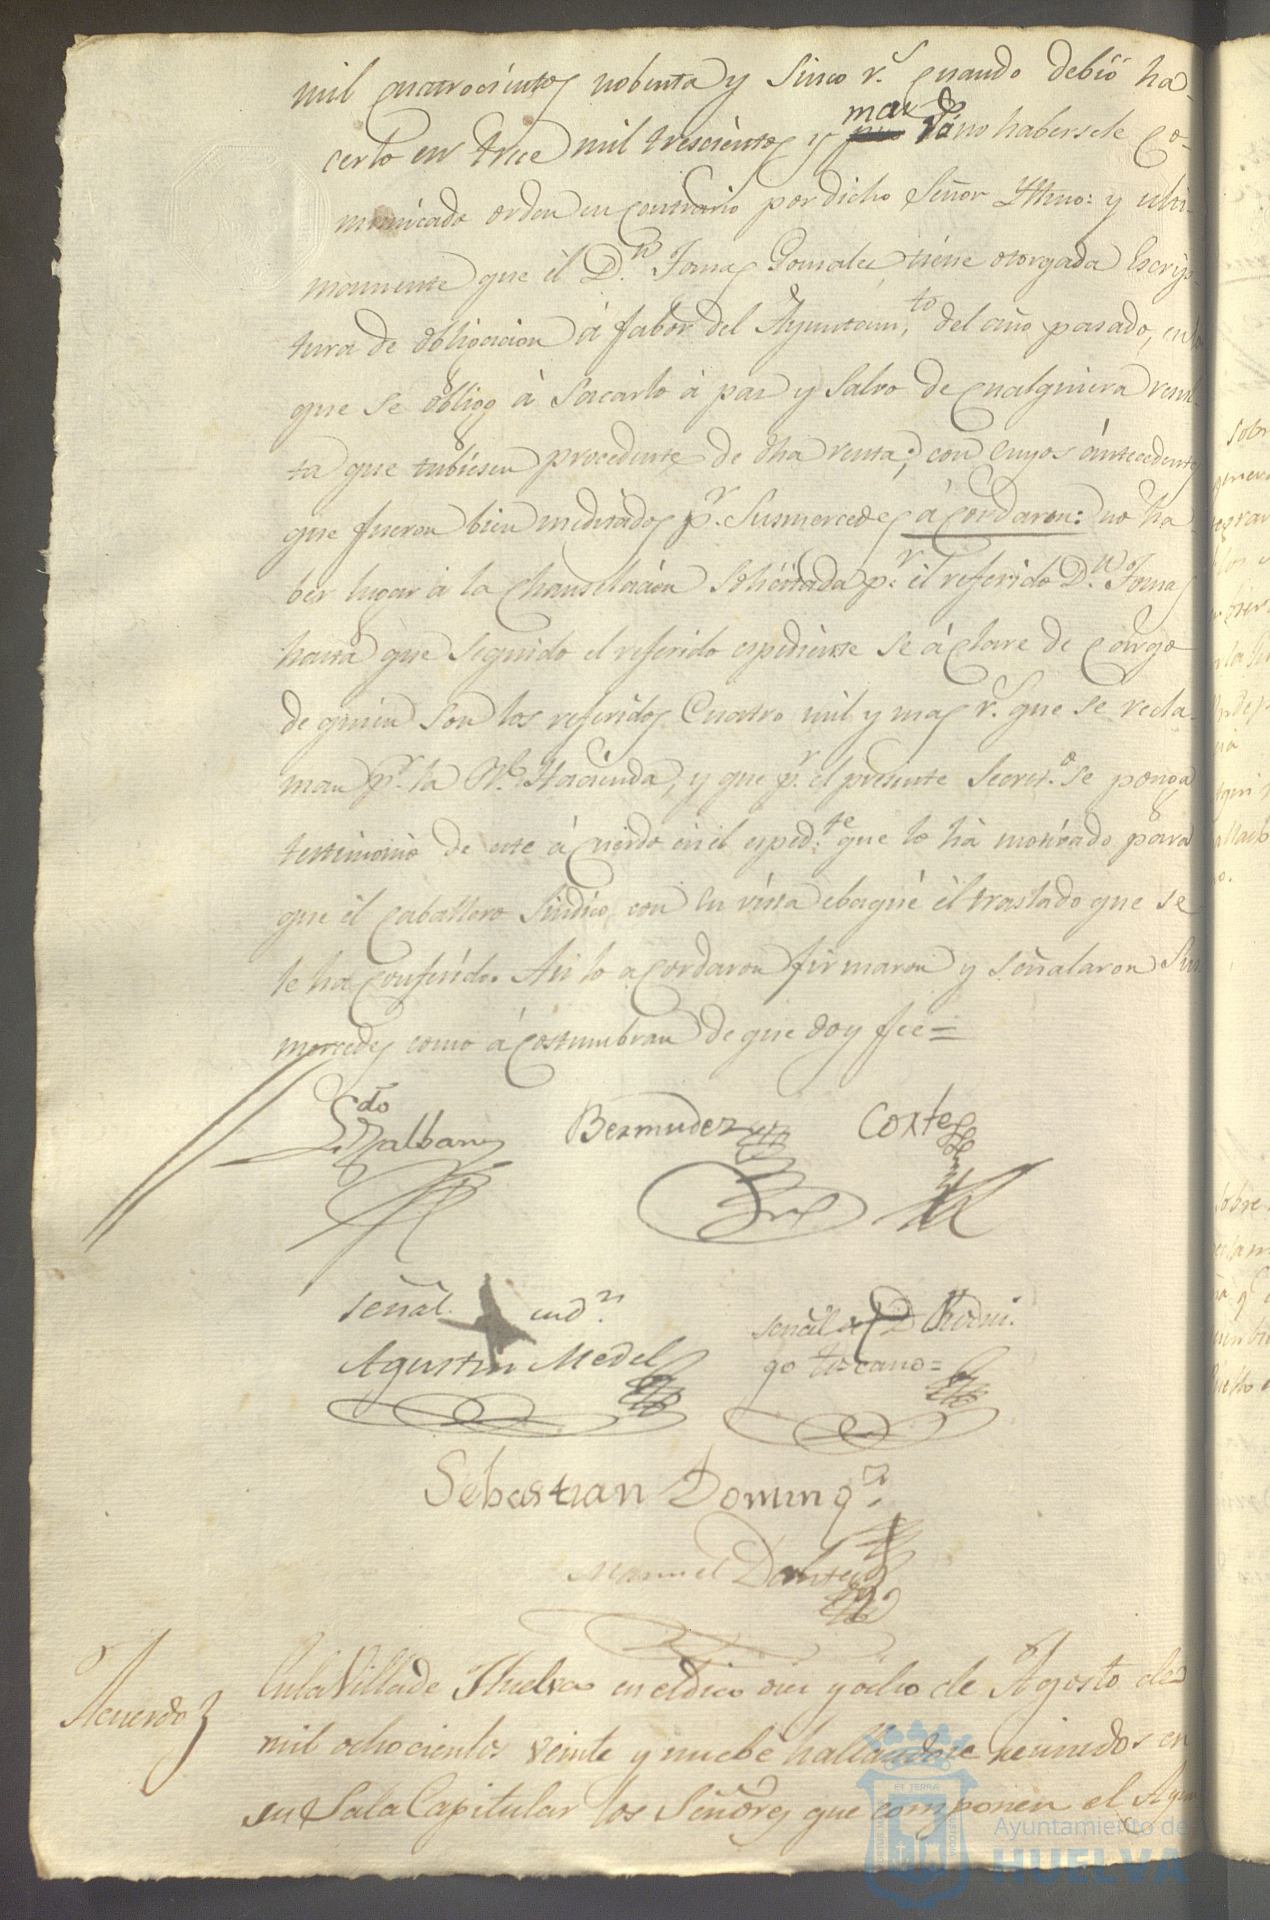 mil quatrocientos nobenta y sinco r.s quando debió ha-
cerlo en trece mil trescientos y mas no habersele co-
municado orden en contrario por dicho Señor Yltmo: y ulti-
mamente que él D.n Tomas Gonzales tiene otorgada Escrip-
tura de obligacion á fabor del Ayuntam.to del año pasado, en
que se obligo à sacarlo à paz y salvo de qualquiera resul-
ta que tubiesen procedente de dha renta; con cuyos ántecedentes
que fueron bien meditados p.r Susmercedes ácordaron: no ha
ber lugar à la Chanselacion solicitada p.r él referido D.n Tomas
hasta que seguido el referido espediente se áclare de cargo
de quien son los referidos quatro mil y mas r.s que se recla-
man p.r la R.l Hacienda, y que p.r el presente Secret.o se ponga
testimonio de este ácuerdo en el esped.te que lo hà motibado para
que él caballero Sindico con su vista ebaque él traslado que se
le ha conferido. Asi lo acordaron firmaron y señalaron Sus
mercedes como ácostumbran de que doy fee=
Lcdo Balbany Bermudez Cortes
señal. en d.n señal de D Rodri-
Agustin Medel go Toscano=
Sebastian Doming.z
Manuel Dante
Acuerdo En la Villa de Huelva en el dia diez y ocho de Agosto de
mil ochocientos veinte y nuebe hallandose reunidos en
su Sala Capitular los Señores que componen el Ayun
Ayuntamiento de
HUELVA